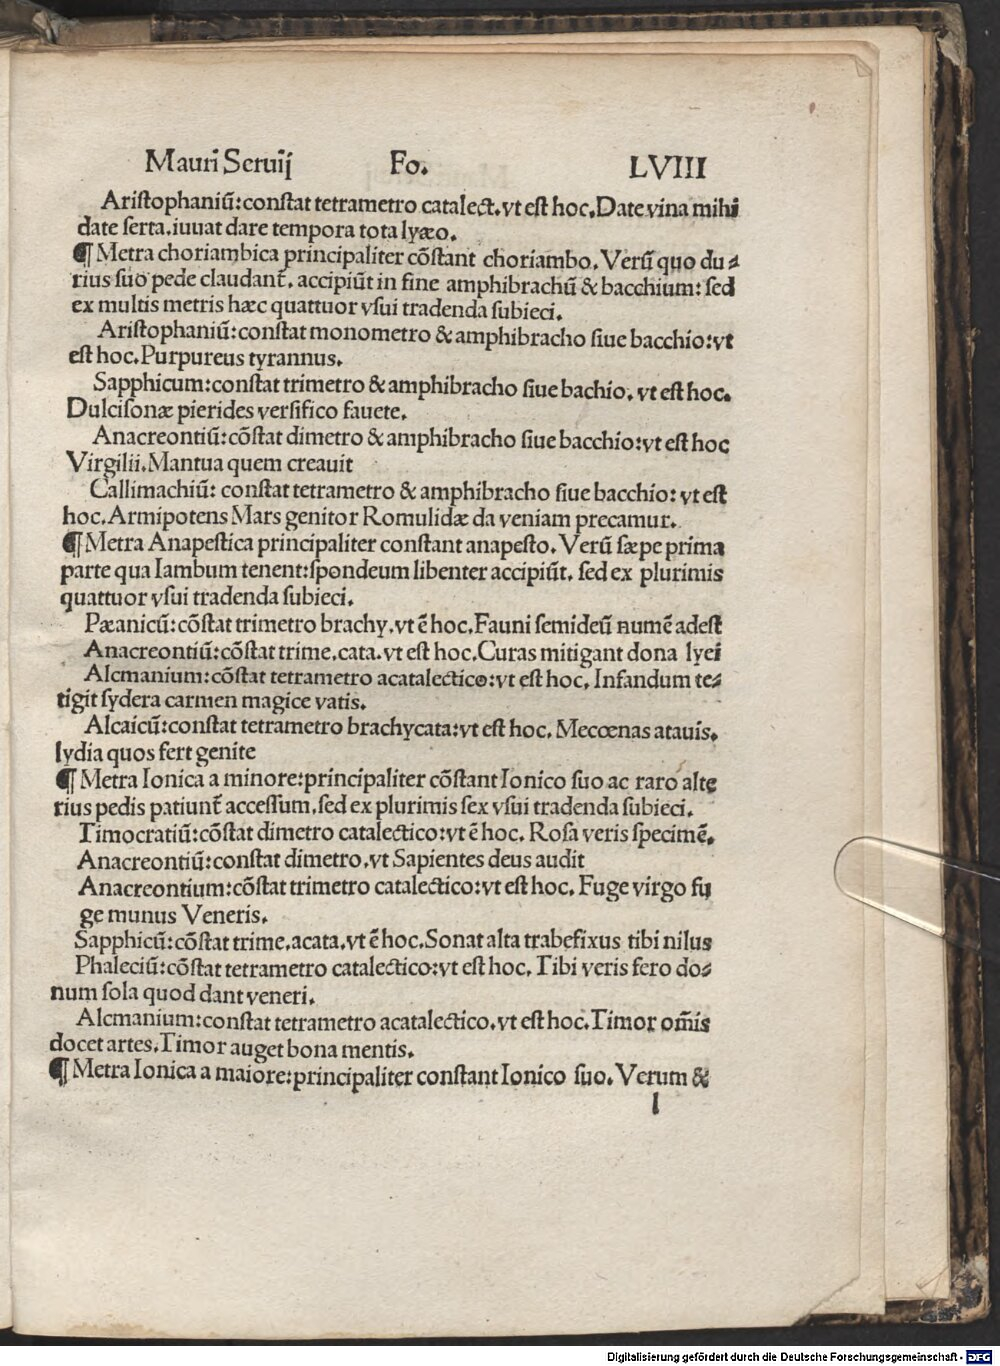 Mauri Seruij Fo. LVIII
Aristophaniũ:constat tetrametro catalect.vt est hoc.Date vina mihi
date serta.iuuat dare tempora tota lyæo.
¶ Metra choriambica principaliter cõstant choriambo. Verũ quo du⸗
rius suo pede claudant̃. accipiũt in fine amphibrachũ & bacchium: sed
ex multis metris hæc quattuor vsui tradenda subieci.
Aristophaniũ:constat monometro & amphibracho siue bacchio:vt
est hoc.Purpureus tyrannus.
Sapphicum:constat trimetro & amphibracho siue bachio. vt est hoc.
Dulcisonæ pierides versifico fauete.
Anacreontiũ:cõstat dimetro & amphibracho siue bacchio:vt est hoc
Virgilii.Mantua quem creauit
Callimachiũ: constat tetrametro & amphibracho siue bacchio: vt est
hoc.Armipotens Mars genitor Romulidæ da veniam precamur.
¶ Metra Anapestica principaliter constant anapesto. Verũ sæpe prima
parte qua Iambum tenent:spondeum libenter accipiũt. sed ex plurimis
quattuor vsui tradenda subieci.
Pæanicũ:cõstat trimetro brachy.vt ẽ hoc.Fauni semideũ numẽ adest
Anacreontiũ:cõstat trime.cata.vt est hoc.Curas mitigant dona lyei
Alcmanium:cõstat tetrametro acatalectico:vt est hoc. Infandum te⸗
tigit sydera carmen magice vatis.
Alcaicũ:constat tetrametro brachycata:vt est hoc. Mecœnas atauis.
lydia quos fert genite
¶ Metra Ionica a minore:principaliter cõstant Ionico suo ac raro alte
rius pedis patiunt̃ accessum.sed ex plurimis sex vsui tradenda subieci.
Timocratiũ:cõstat dimetro catalectico:vt ẽ hoc. Rosa veris specimẽ.
Anacreontiũ:constat dimetro.vt Sapientes deus audit
Anacreontium:cõstat trimetro catalectico:vt est hoc. Fuge virgo fu
ge munus Veneris.
Sapphicũ:cõstat trime.acata.vt ẽ hoc.Sonat alta trabefixus tibi nilus
Phaleciũ:cõstat tetrametro catalectico:vt est hoc. Tibi veris fero do⸗
num sola quod dant veneri.
Alcmanium:constat tetrametro acatalectico.vt est hoc.Timor om̃is
docet artes.Timor auget bona mentis.
¶ Metra Ionica a maiore:principaliter constant Ionico suo. Verum &
l
Digitalisierung gefördert durch die Deutsche Forschungsgemeinschaft - DFG